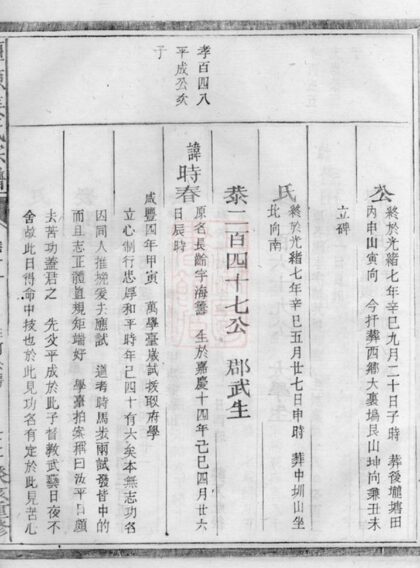 公 終於光緒七年辛巳九月二十日子時 葬後壠塘田
內申山寅向 今扦葬西鄉大裏塢艮山坤向兼丑未
立碑
氏 終於光緒七年辛巳五月廿七日申時 葬中圳山坐
北向南
孝百四八
平成公次
子
恭二百四十七公 郡武生
諱時春 原名長齡字海籌 生於嘉慶十四年己巳四月廿六
日辰時
咸豐四年甲寅 萬學臺歲試拨取府學
立心制行忠厚和平時年已四十有六矣本無志功名
因同人推挽爰去應試 道考時馬步兩試發皆中的
而且志正體直規矩端好 學臺拍案稱曰汝平日顧
去苦功蓋君之 先父平成於此子督教武藝日夜不
舍故此日得命中技也於此見功名有定於此見苦心